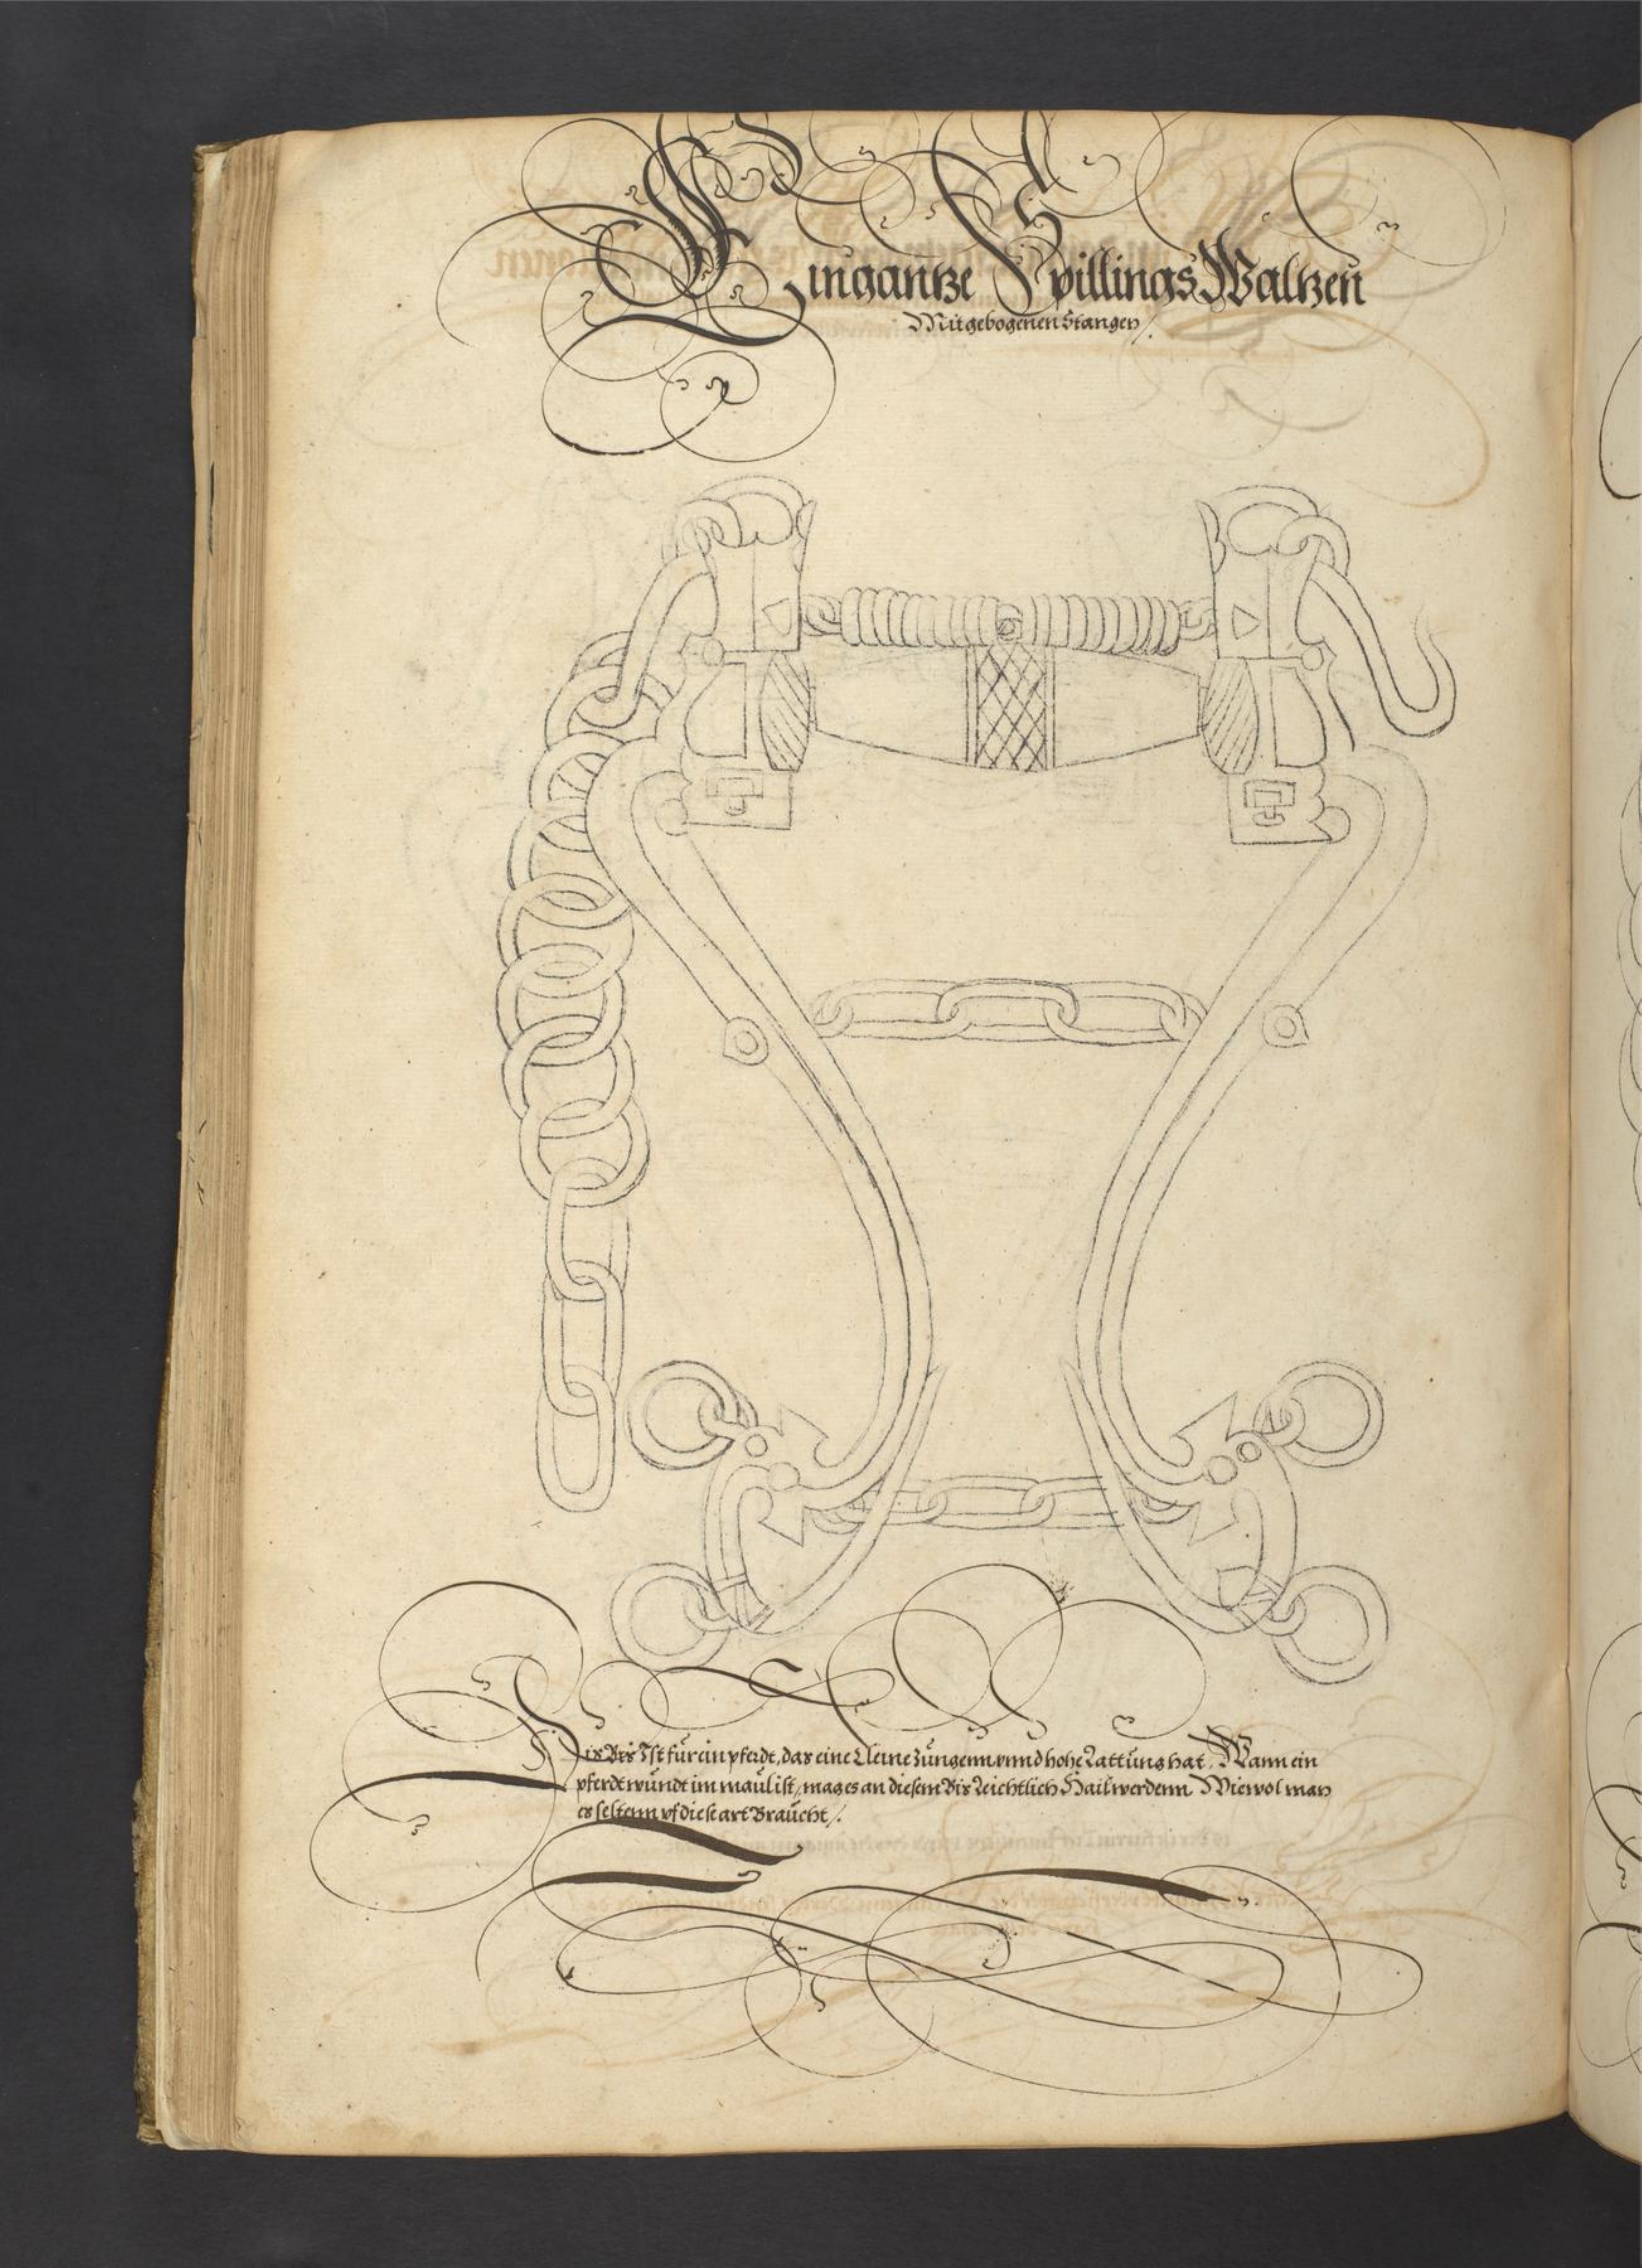 Ein gantze Spillings Waltzen
Mit gebogenen Stangen /.
Dis Bis Ist für ein pferdt, das eine kleine zungenn unnd hohe Lattung hat. Wann ein
pferdt wundt im maul ist, mag es an diesem Bis Leichtlich Hail werdenn Wiewol man
es seltenn uf diese art Braucht /.